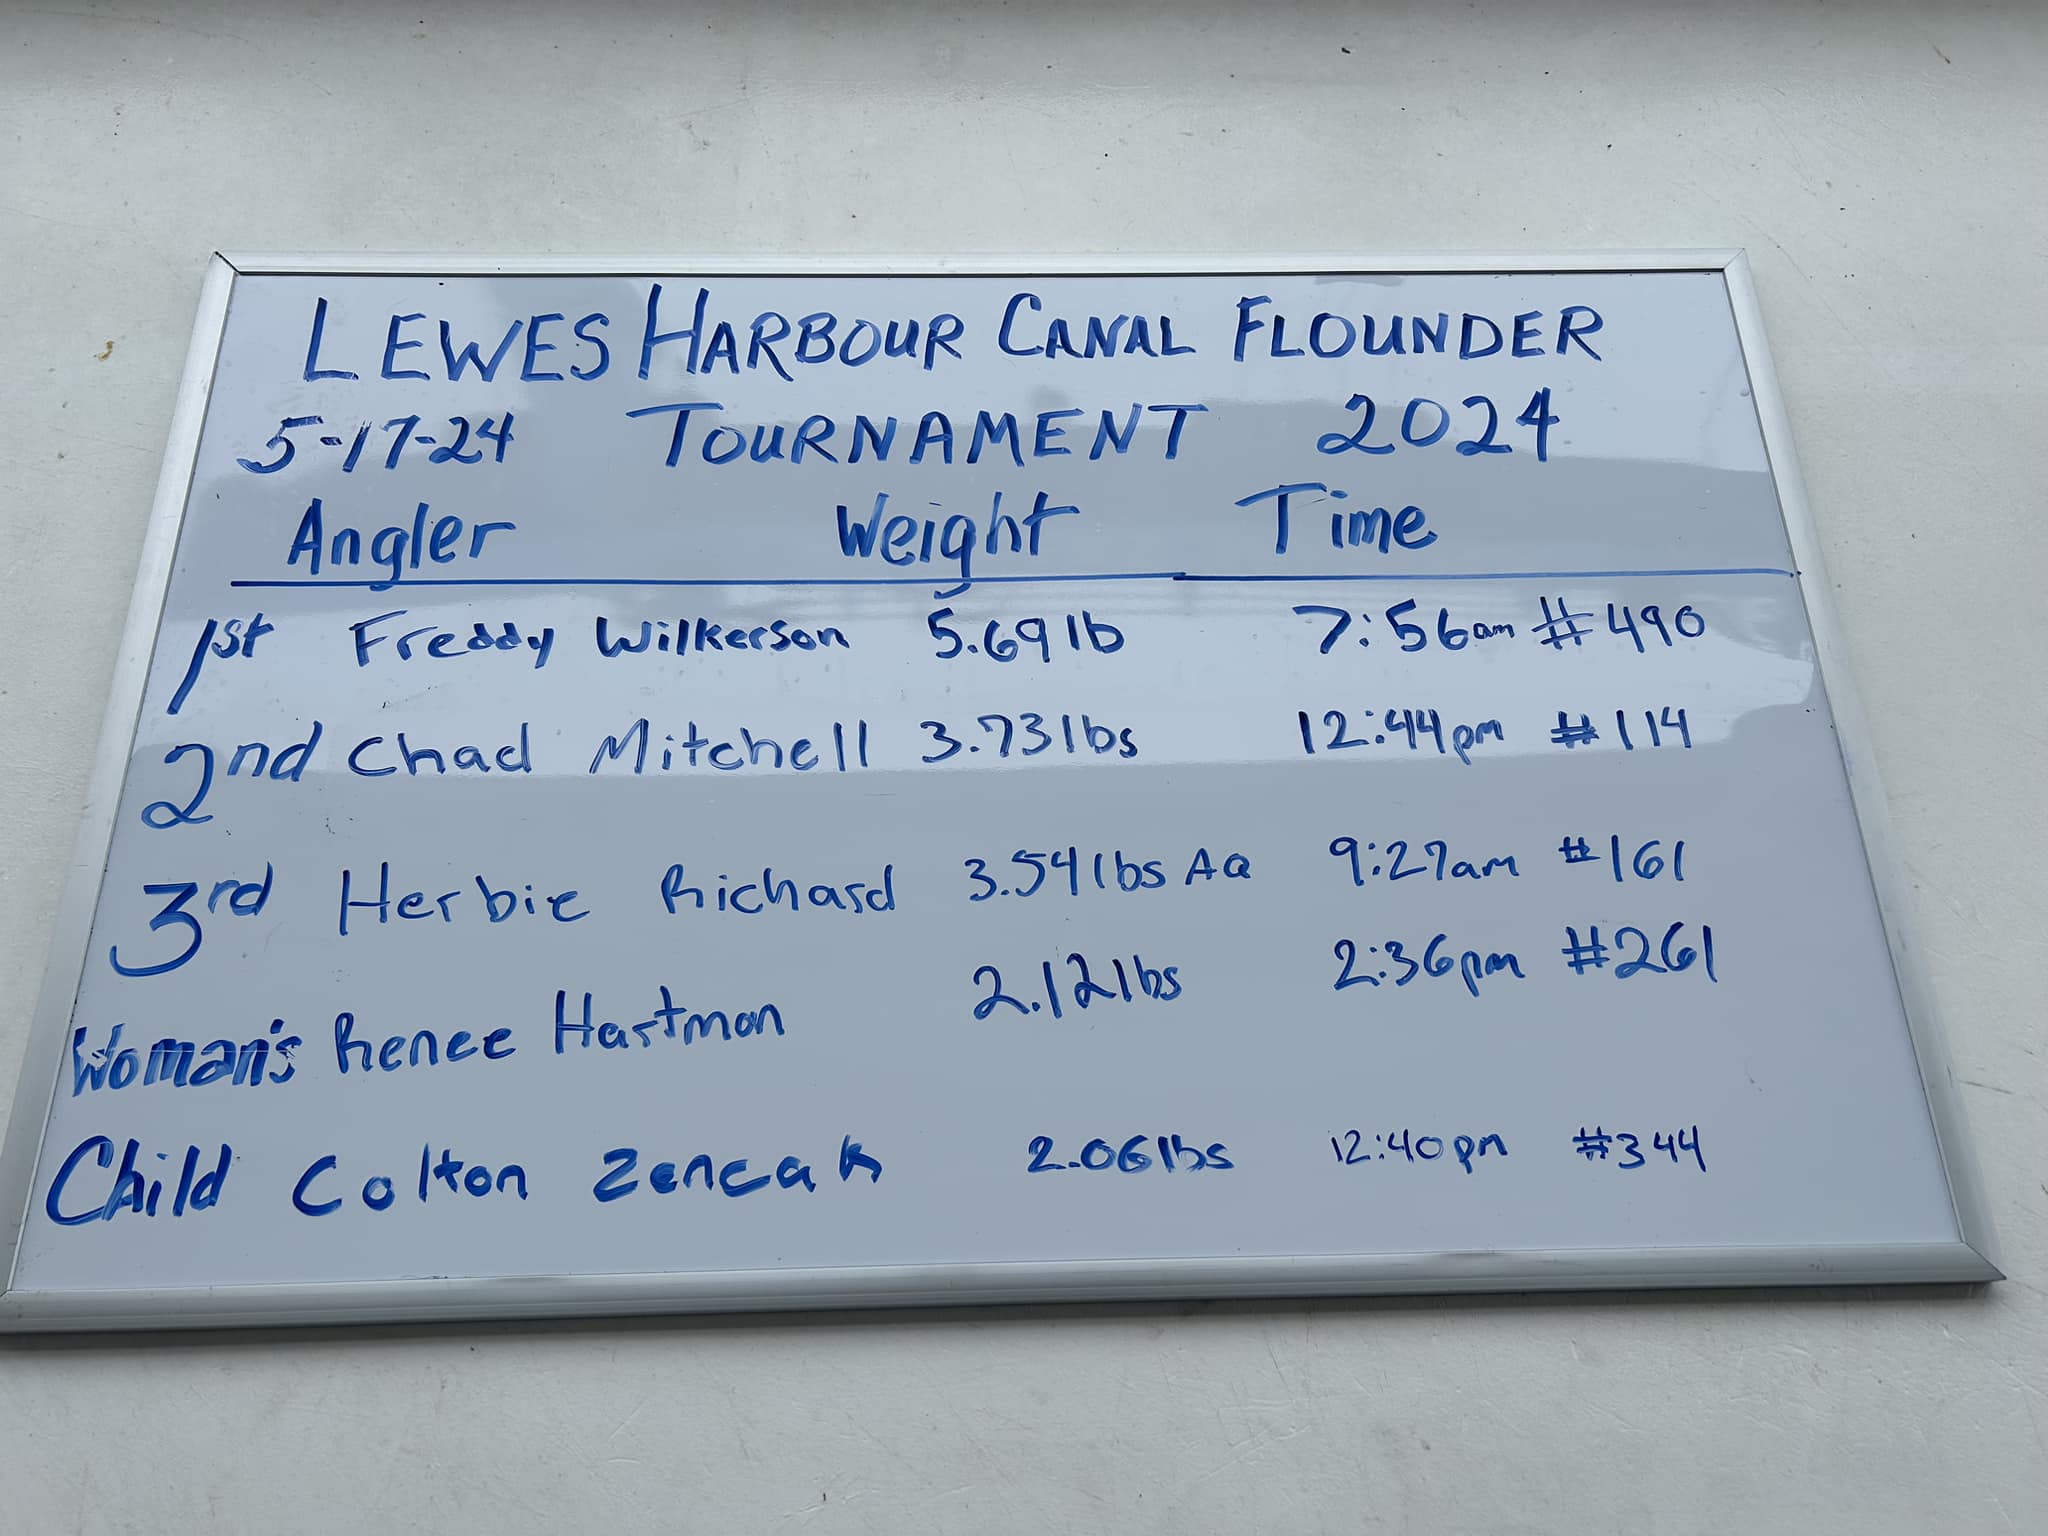 LEWES HARBOUR CANAL FLOUNDER
5-17-24 TOURNAMENT 2024
Angler Weight Time
1st Freddy Wilkerson 5.69lb 7:56am #490
2nd Chad Mitchell 3.73lbs 12:44pm #114
3rd Herbie Richard 3.54lbs AQ 9:27am #161
Woman's Renee Hartman 2.12lbs 2:36pm #261
Child Colton Zencak 2.06lbs 12:40pm #344